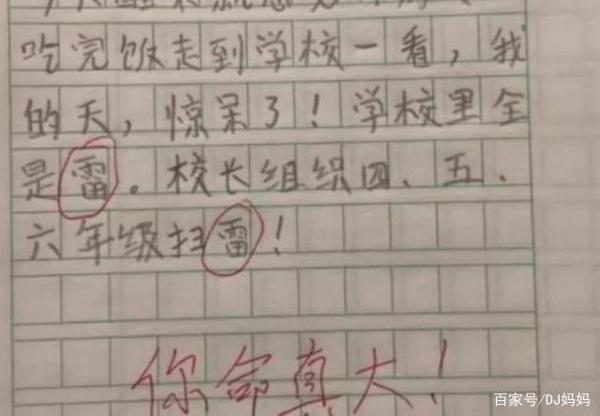 吃完饭走到学校一看，我
的天，惊呆了！学校里全
是雷。校长组织四、五、
六年级扫雷！
你命真大！
百家号/DJ妈妈